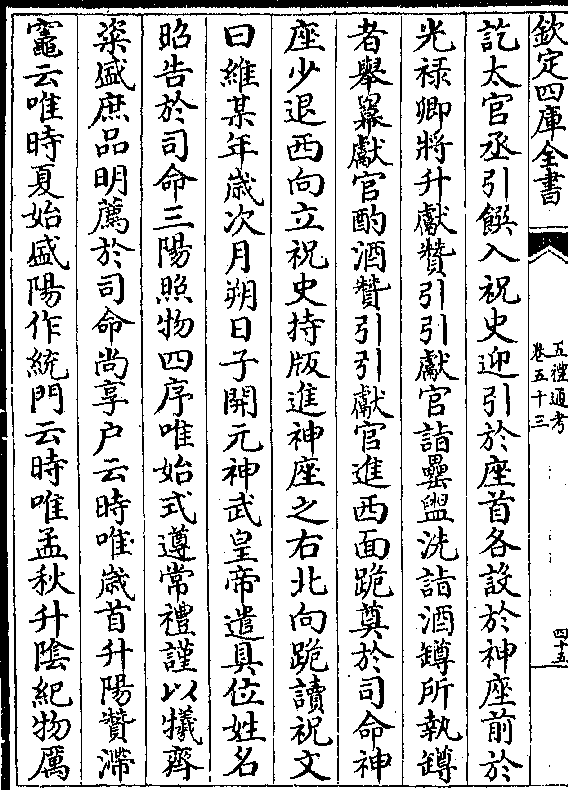 欽定四庫全書
五禮通考
卷五十三
四十五
訖太官丞引饌入祝史迎引於座首各設於神座前於
光祿卿將升獻贊引引獻官詣罍盥洗詣酒罇所執罇
者舉羃獻官酌酒贊引引獻官進西面跪奠於司命神
座少退西向立祝史持版進神座之右北向跪讀祝文
曰維某年歲次月朔日子開元神武皇帝遣具位姓名
昭告於司命三陽照物四序唯始式遵常禮謹以犧齊
粢盛庶品明薦於司命尚享户云時唯歲首升陽贊滯
竈云唯時夏始盛陽作統門云時唯孟秋升陰紀物厲